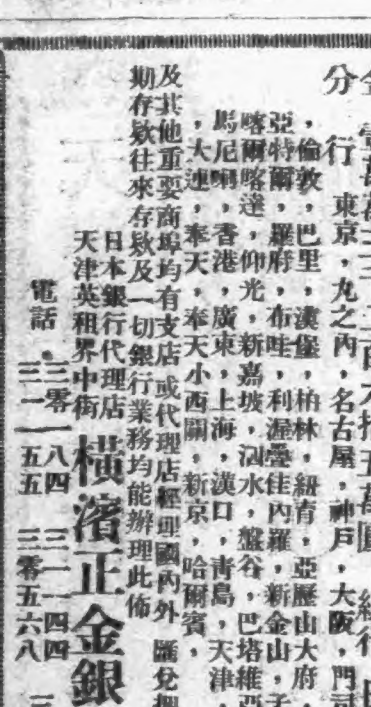 分行 東京，丸之內，名古屋，神戶，大阪，門司
，倫敦，巴里，漢堡，柏林，紐育，亞歷山大府，
亞特爾，羅府，布哇，利渥壘佳內羅，新金山，孟
喀爾喀達，仰光，新嘉坡，泗水，盤谷，巴塔維亞
馬尼喇，香港，廣東，上海，漢口，青島，天津，
，大連，奉天，奉天小西關，新京，哈爾賓，
及其他重要商埠均有支店或代理店經理國內外匯兌
期存欵往來存欵及一切銀行業務均能辦理此佈
日本銀行代理店
天津英租界中街 橫濱正金銀
電話
三零一八四 三一一四四
三一一五五 三零五六八